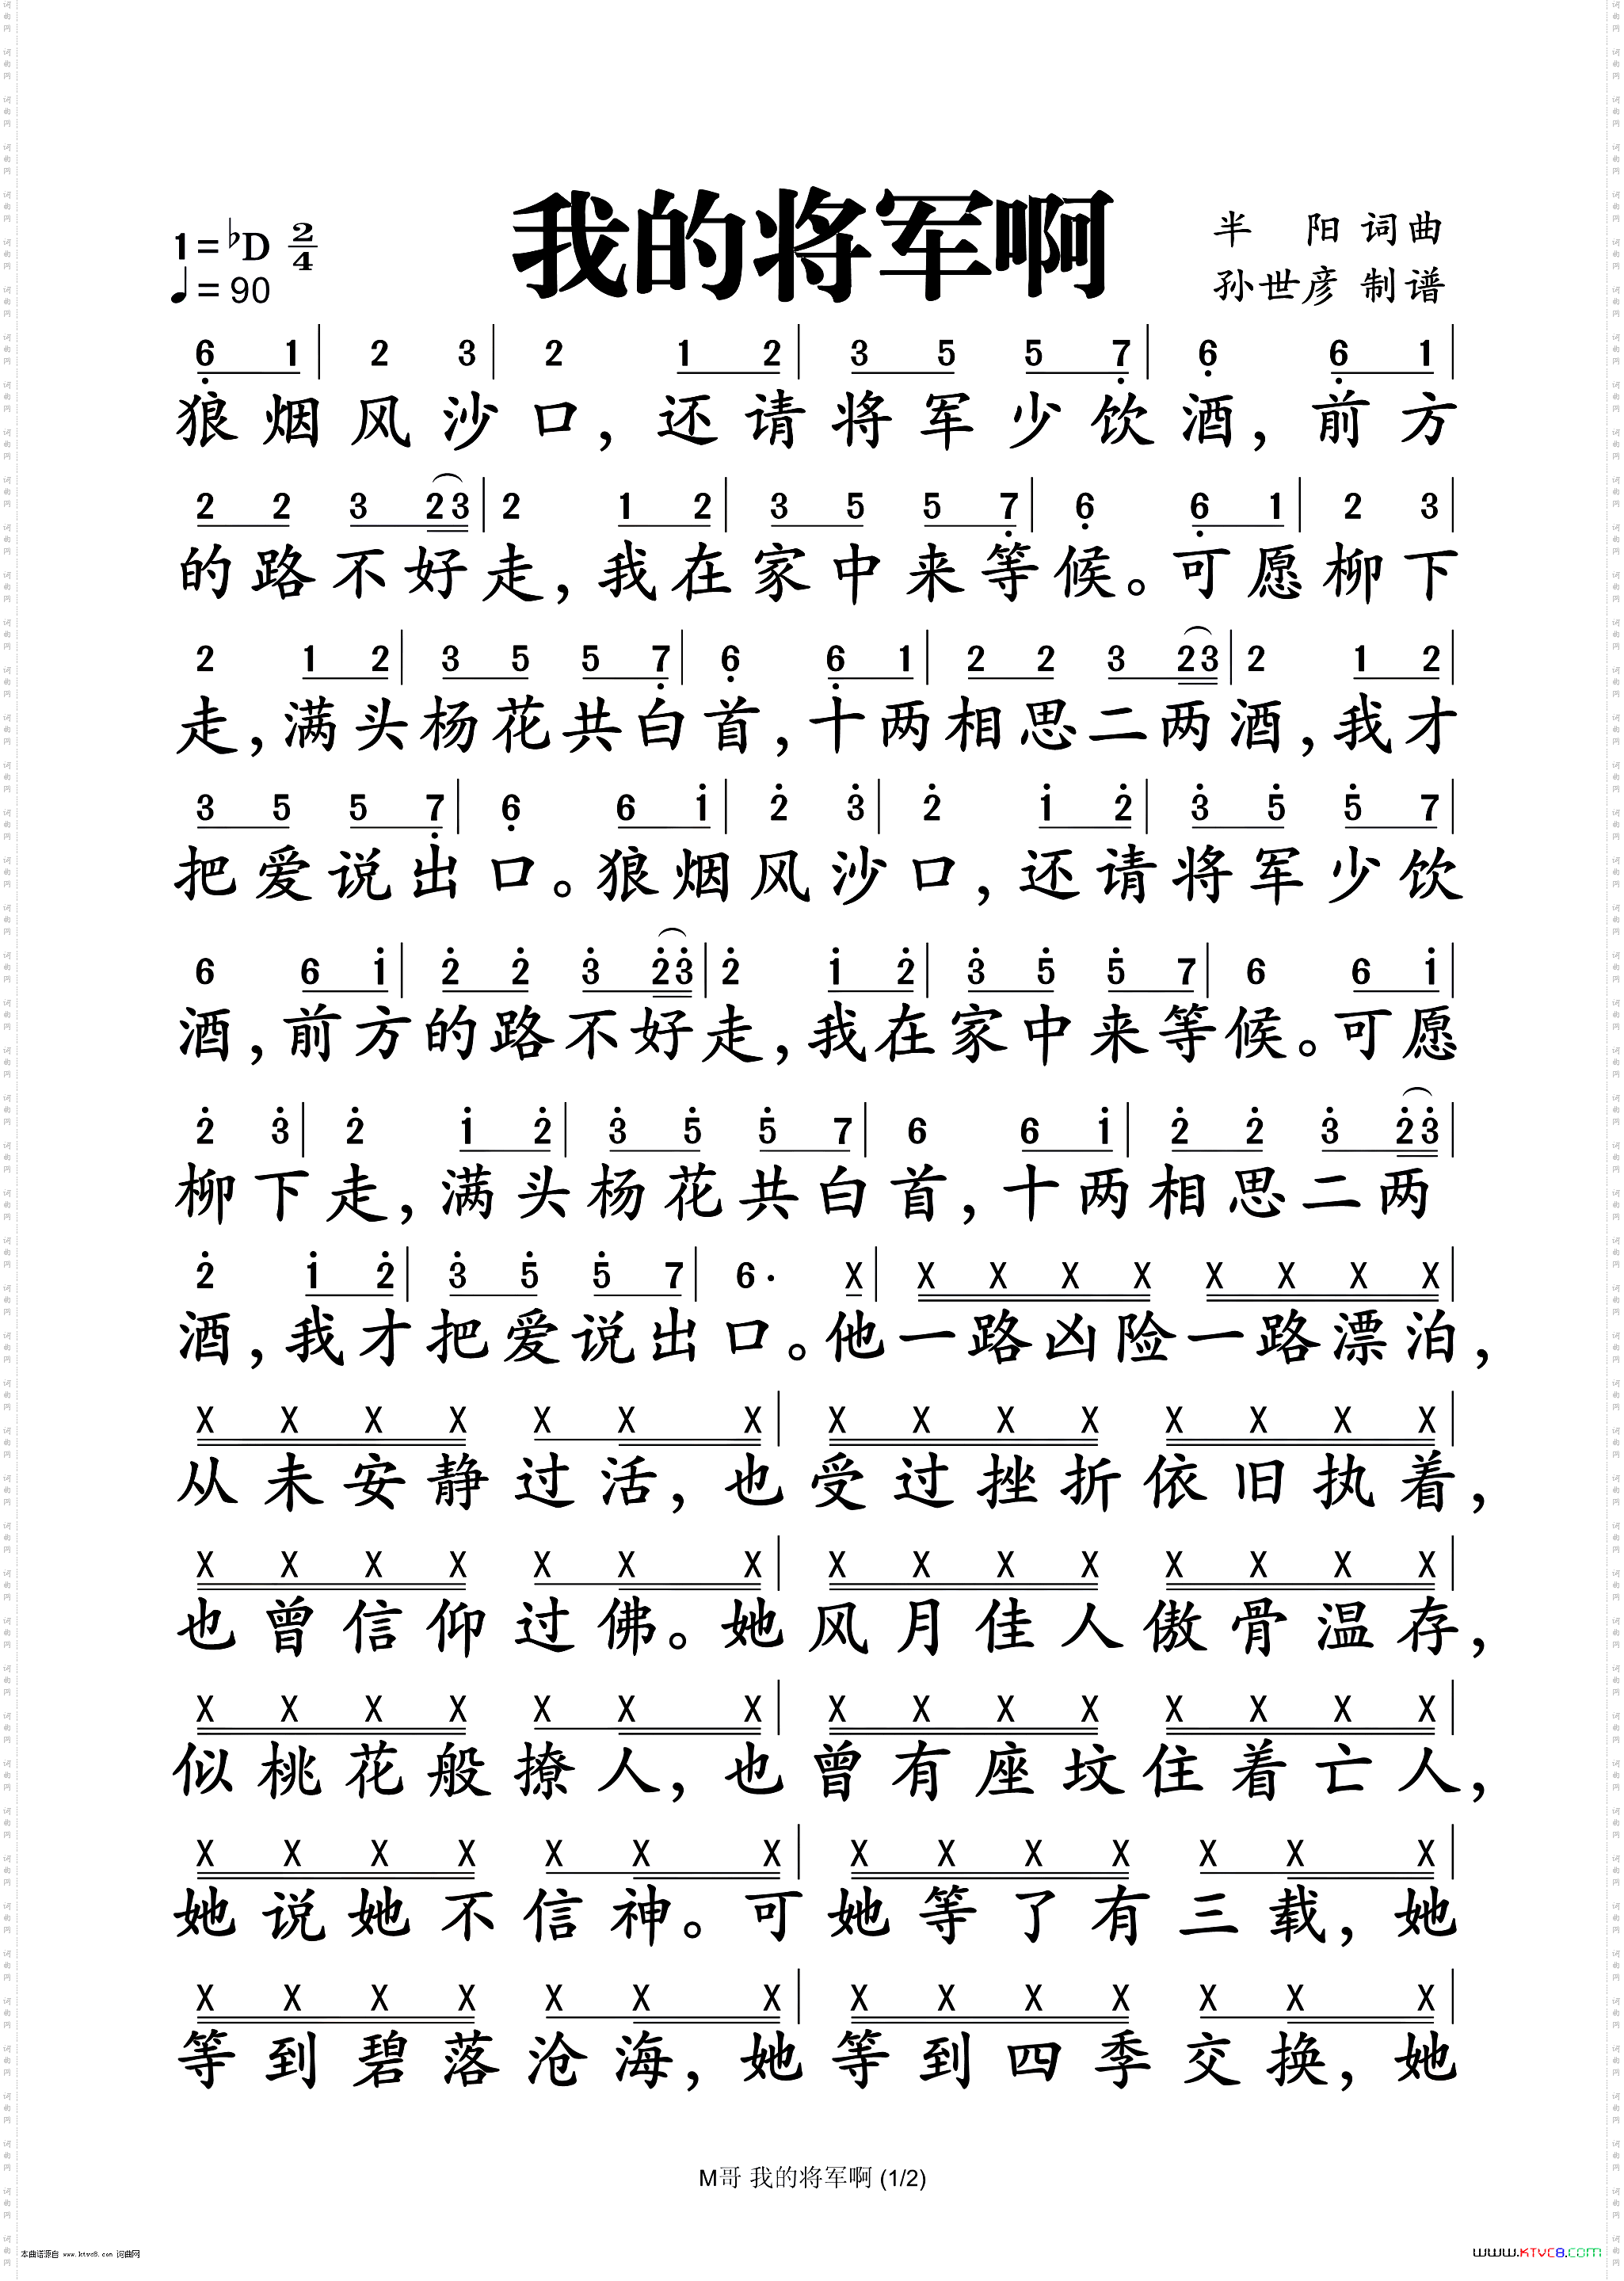 我的将军啊
1=♭D 2/4
♩=90
半 阳 词曲
孙世彦 制谱
6 1 | 2 3 | 2 1 2 | 3 5 5 7 | 6 6 1 |
狼烟风沙口，还请将军少饮酒，前方
2 2 3 2 3 | 2 1 2 | 3 5 5 7 | 6 6 1 | 2 3 |
的路不好走，我在家中来等候。可愿柳下
2 1 2 | 3 5 5 7 | 6 6 1 | 2 2 3 2 3 | 2 1 2 |
走，满头杨花共白首，十两相思二两酒，我才
3 5 5 7 | 6 6 1 | 2 3 | 2 1 2 | 3 5 5 7 |
把爱说出口。狼烟风沙口，还请将军少饮
6 6 1 | 2 2 3 2 3 | 2 1 2 | 3 5 5 7 | 6 6 1 |
酒，前方的路不好走，我在家中来等候。可愿
2 3 | 2 1 2 | 3 5 5 7 | 6 6 1 | 2 2 3 2 3 |
柳下走，满头杨花共白首，十两相思二两
2 1 2 | 3 5 5 7 | 6· X | X X X X X X X X |
酒，我才把爱说出口。他一路凶险一路漂泊，
X X X X X X X | X X X X X X X X |
从未安静过活，也受过挫折依旧执着，
X X X X X X X | X X X X X X X X |
也曾信仰过佛。她风月佳人傲骨温存，
X X X X X X X | X X X X X X X X |
似桃花般撩人，也曾有座坟住着亡人，
X X X X X X X | X X X X X X X |
她说她不信神。可她等了有三载，她
X X X X X X X | X X X X X X X |
等到碧落沧海，她等到四季交换，她
M哥 我的将军啊 (1/2)
本曲谱源自 www.ktvc8.com 词曲网
WWW.KTVC8.COM